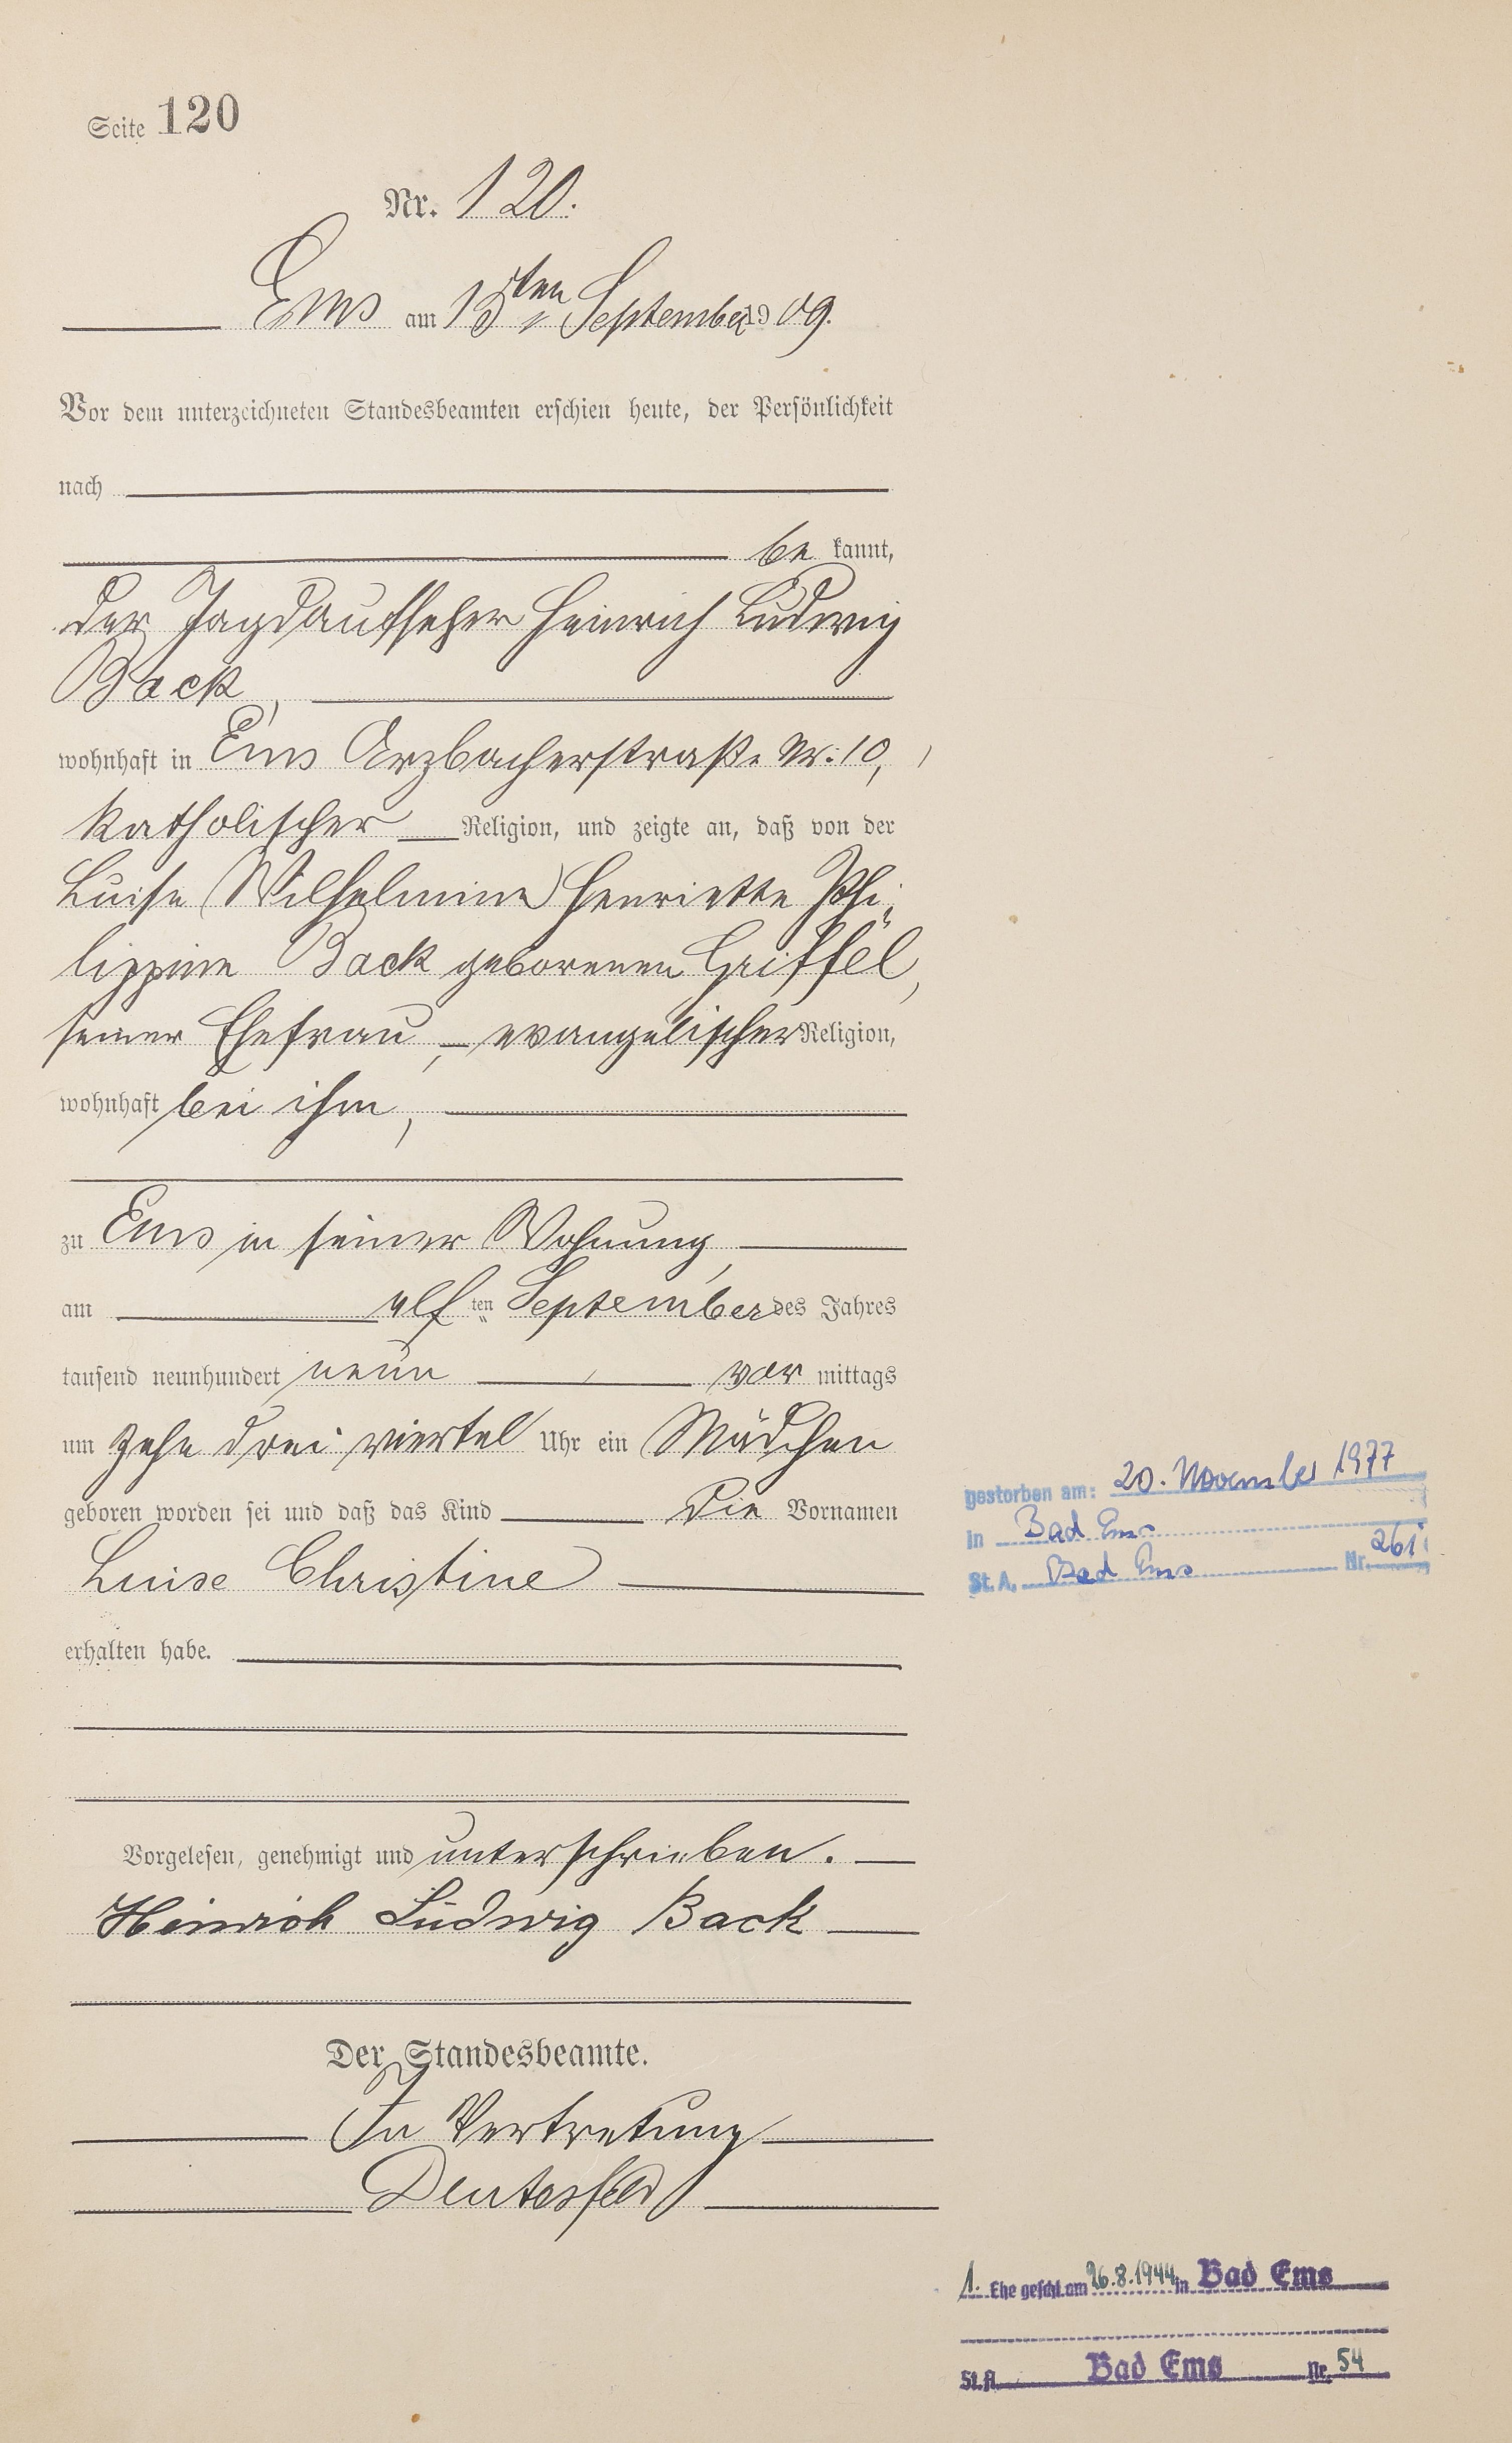 Seite 120
Nr. 120.
Ems am 15ten September 1909.
Vor dem unterzeichneten Standesbeamten erschien heute, der Persönlichkeit
nach
be kannt,
der Jagdaufseher Heinrich Ludwig
Back,
wohnhaft in Ems Arzbacherstraße Nr: 10,
katholischer Religion, und zeigte an, daß von der
Luise (Wilhelmine) Henriette Phi-
lippine Back geborenen Griffel,
seiner Ehefrau, evangelischer Religion,
wohnhaft bei ihm,
zu Ems in seiner Wohnung,
am elf ten September des Jahres
tausend neunhundert neun vor mittags
um zehn drei viertel Uhr ein Mädchen
geboren worden sei und daß das Kind die Vornamen
Luise Christine
erhalten habe.
Vorgelesen, genehmigt und unterschrieben.
Heinrich Ludwig Back
Der Standesbeamte.
In Vertretung
gestorben am: 20. November 1977
in Bad Ems
St. A. Bad Ems Nr. 261
1. Ehe geschl. am 26.8.1944 in Bad Ems
St. A. Bad Ems Nr. 54